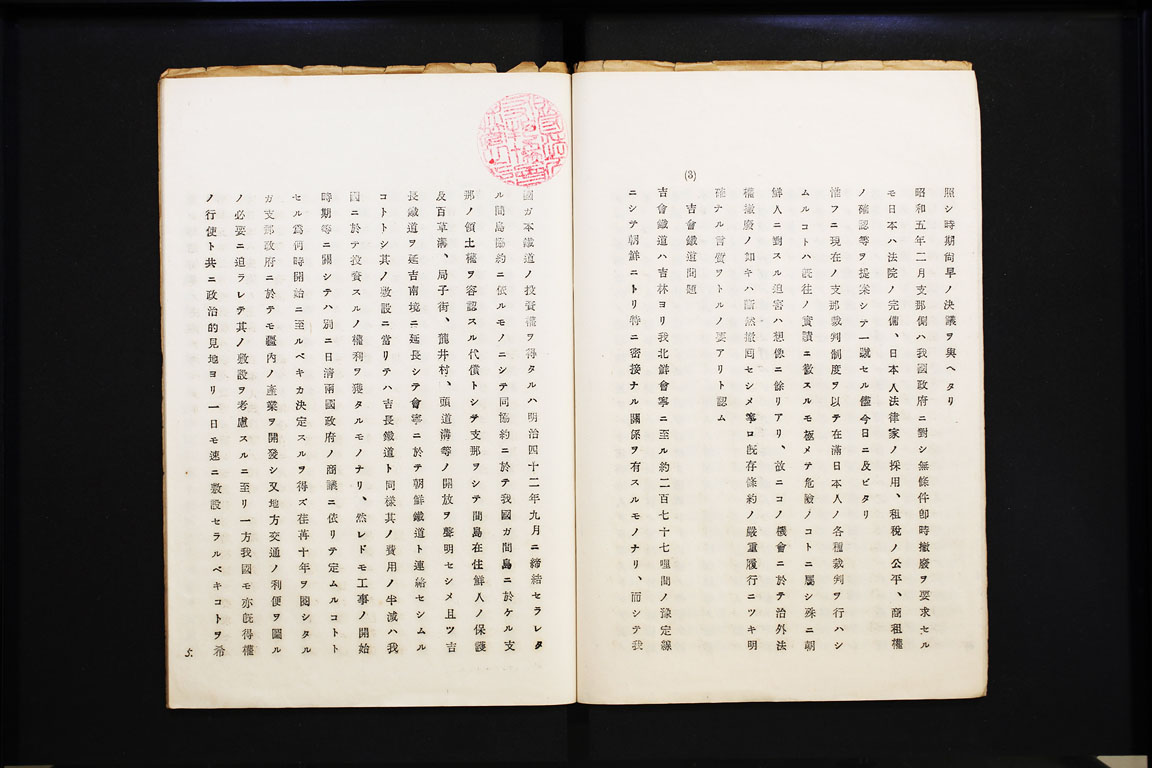 照シ時期尙早ノ決議ヲ與ヘタリ
昭和五年二月支那側ハ我國政府ニ對シ無條件卽時撤廢ヲ要求セル
モ日本ハ法院ノ完備、日本人法律家ノ採用、租稅ノ公平、商租權
ノ確認等ヲ提案シテ一蹴セル儘今日ニ及ビタリ
惟フニ現在ノ支那裁判制度ヲ以テ在滿日本人ノ各種裁判ヲ行ハシ
ムルコトハ旣往ノ實蹟ニ徵スルモ極メテ危險ノコトニ屬シ殊ニ朝
鮮人ニ對スル迫害ハ想像ニ餘リアリ、故ニコノ機會ニ於テ治外法
權撤廢ノ如キハ斷然撤回セシメ寧ロ旣存條約ノ嚴重履行ニツキ明
確ナル言質ヲトルノ要アリト認ム
(3)
吉會鐵道問題
吉會鐵道ハ吉林ヨリ我北鮮會寧ニ至ル約二百七十七哩間ノ豫定線
ニシテ朝鮮ニトリ特ニ密接ナル關係ヲ有スルモノナリ、而シテ我
國ガ本鐵道ノ投資權ヲ得タルハ明治四十二年九月ニ締結セラレタ
ル間島協約ニ依ルモノニシテ同協約ニ於テ我國ガ間島ニ於ケル支
那ノ領土權ヲ容認スル代償トシテ支那ヲシテ間島在住鮮人ノ保護
及百草溝、局子街、龍井村、頭道溝等ノ開放ヲ聲明セシメ且ツ吉
長鐵道ヲ延吉南境ニ延長シテ會寧ニ於テ朝鮮鐵道ト連絡セシムル
コトトシ其ノ敷設ニ當リテハ吉長鐵道ト同樣其ノ費用ノ半減ハ我
國ニ於テ投資スルノ權利ヲ獲タルモノナリ、然レドモ工事ノ開始
時期等ニ關シテハ別ニ日淸兩國政府ノ商議ニ依リテ定ムルコトト
セル爲何時開始ニ至ルベキカ決定スルヲ得ズ荏苒十年ヲ閱シタル
ガ支那政府ニ於テモ疆內ノ產業ヲ開發シ又地方交通ノ利便ヲ圖ル
ノ必要ニ迫ラレテ其ノ敷設ヲ考慮スルニ至リ一方我國モ亦旣得權
ノ行使ト共ニ政治的見地ヨリ一日モ速ニ敷設セラルベキコトヲ希
5.